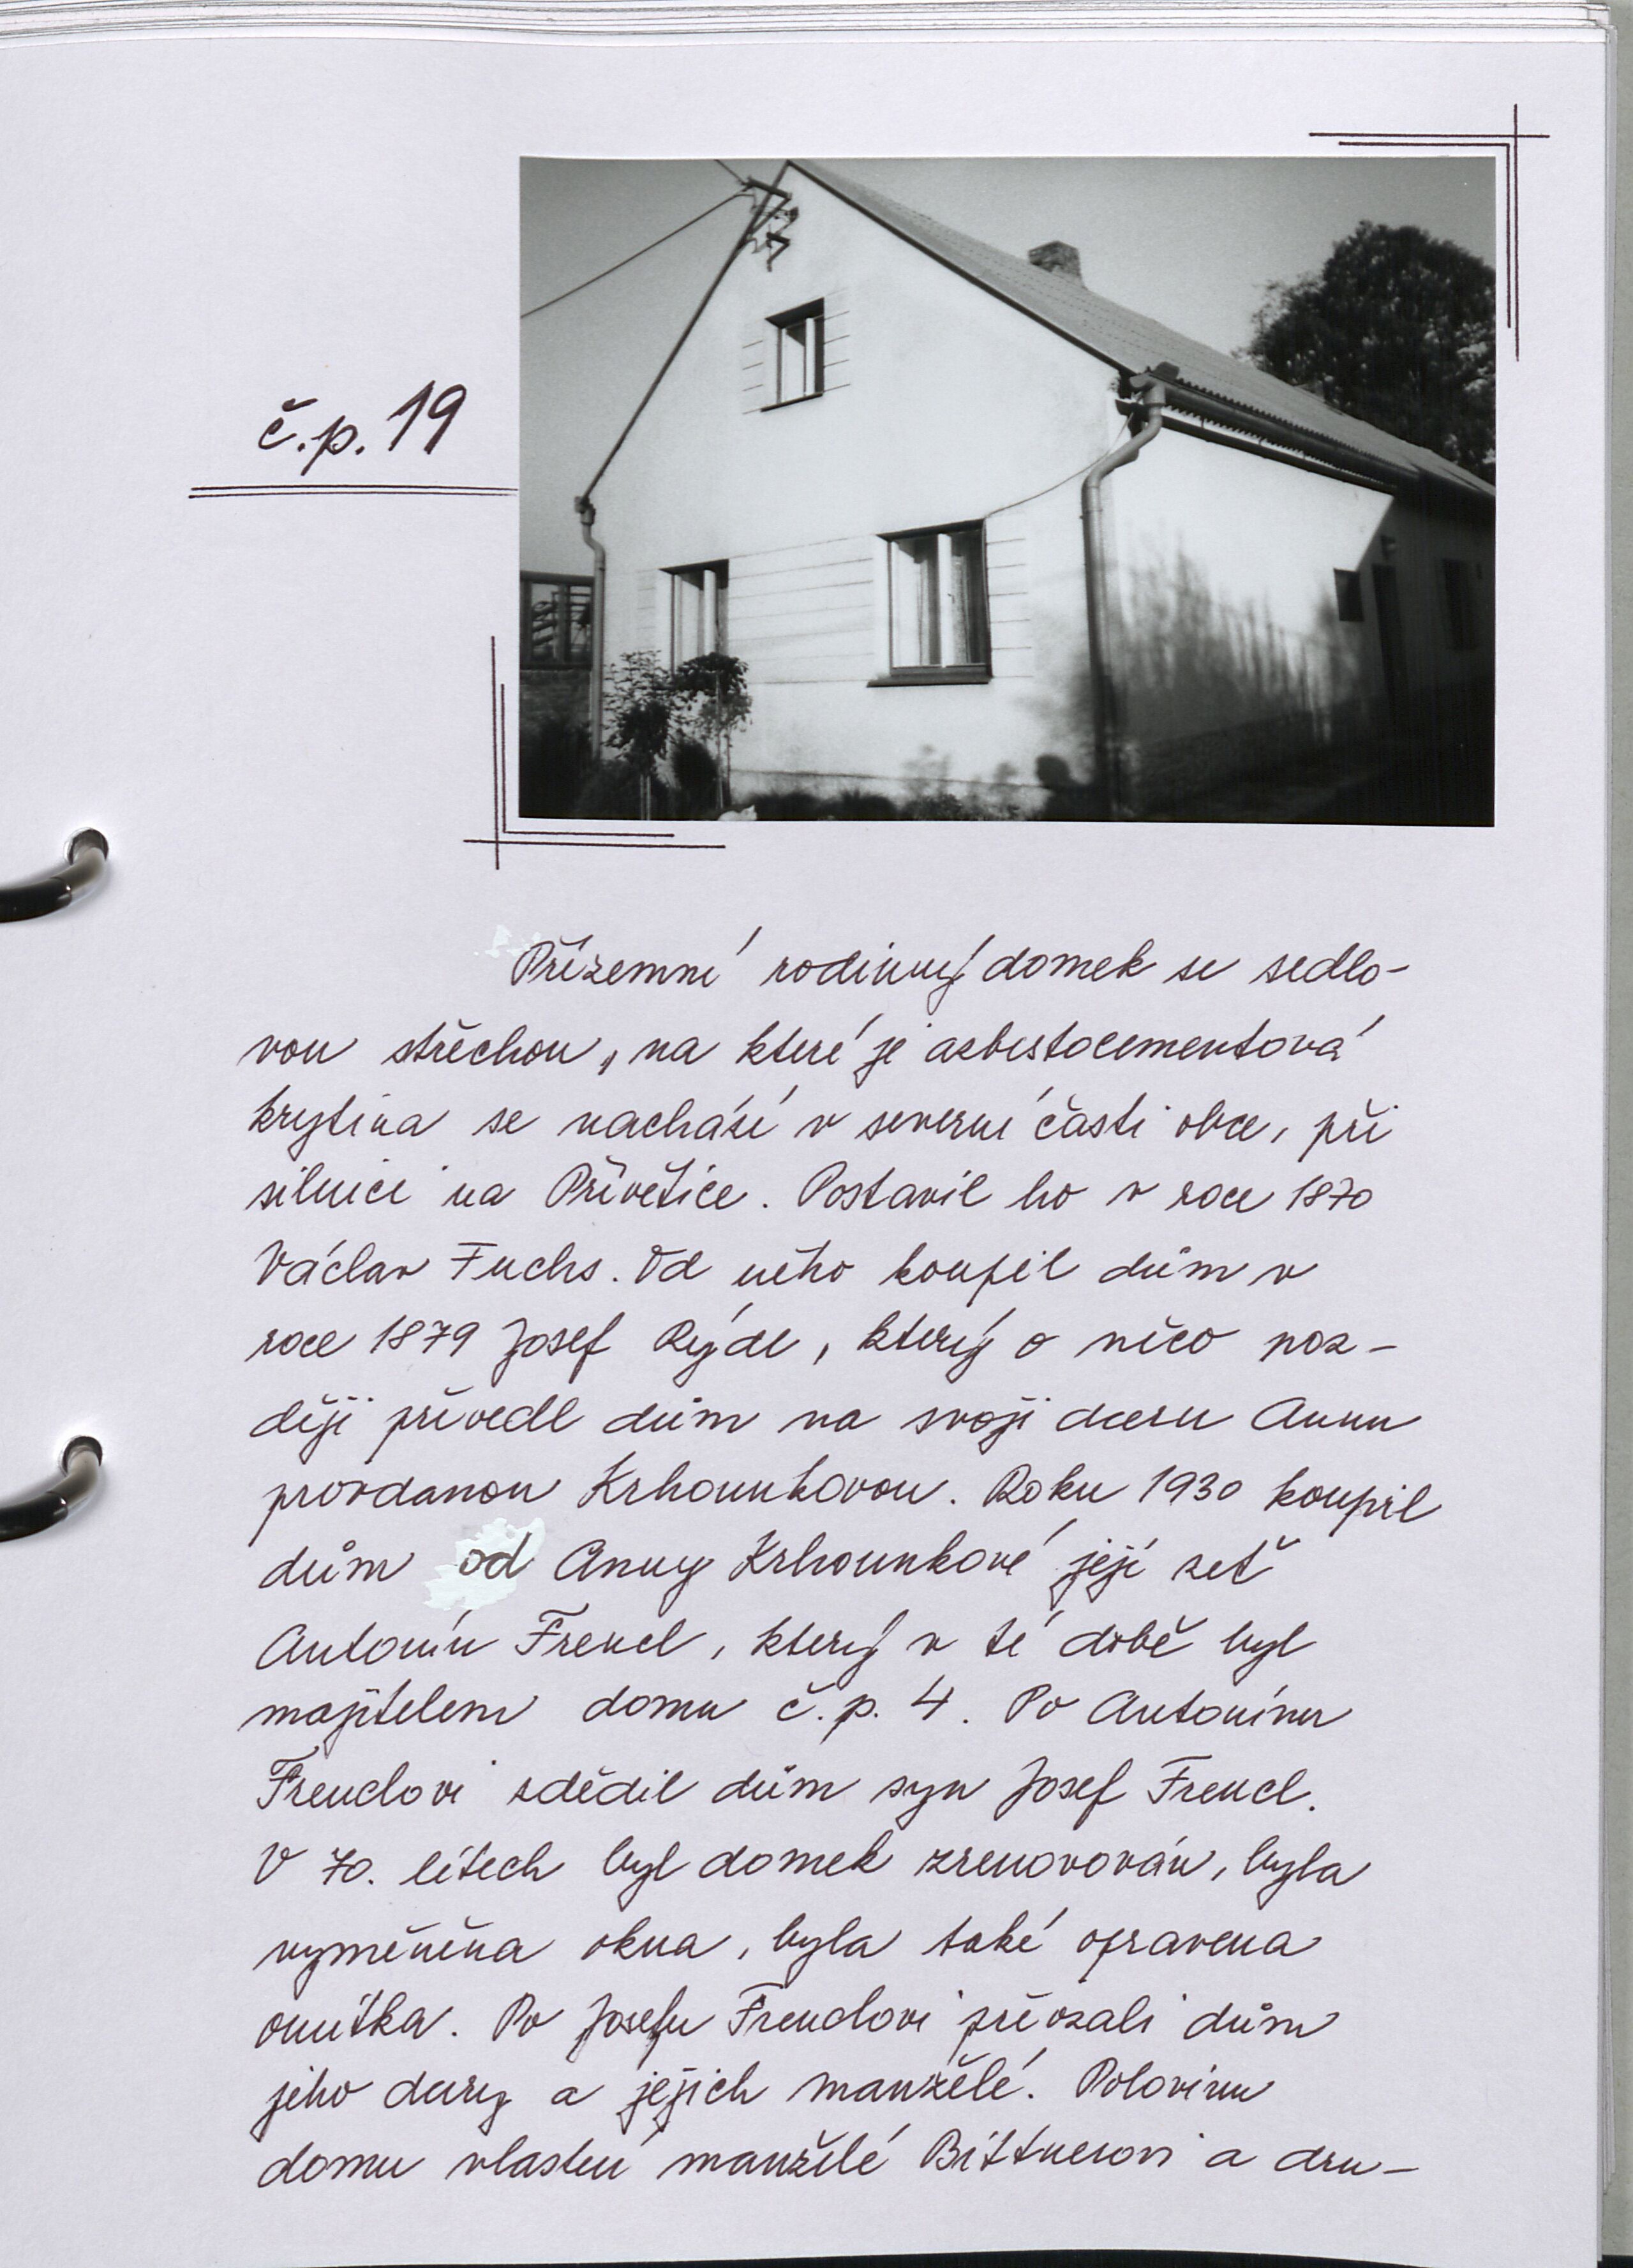 č.p. 19
Přízemní rodinný domek se sedlo-
vou střechou, na které je azbestocementová
krytina se nachází v severní části obce, při
silnici na Přívětice. Postavil ho v roce 1870
Václav Fuchs. Od něho koupil dům v
roce 1879 Josef Rýdl, který o něco poz-
ději převedl dům na svoji dceru Annu
provdanou Krhounkovou. Roku 1930 koupil
dům od Anny Krhounkové její zeť
Antonín Frencl, který v té době byl
majitelem domu č.p. 4. Po Antonínu
Frenclovi zdědil dům syn Josef Frencl.
V 70. létech byl domek zrenovován, byla
vyměněna okna, byla také opravena
omítka. Po Josefu Frenclovi převzali dům
jeho dcery a jejich manželé. Polovinu
domu vlastní manželé Bittnerovi a dru-